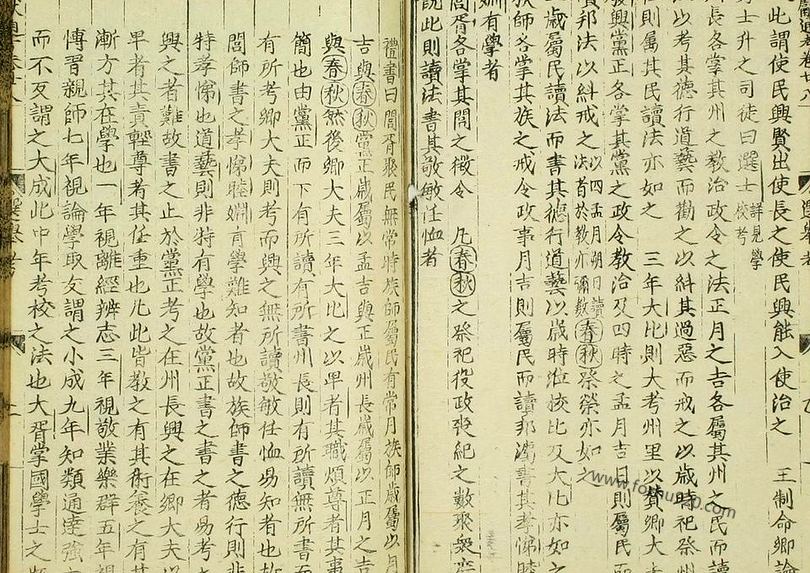 此謂使民興賢出使長之使民興能入使治之　王制命鄉論
士升之司徒曰選士詳見學校考
長各掌其州之教治政令之法正月之吉各屬其州之民而讀
以考其德行道藝而勸之以糾其過惡而戒之以歲時祀祭州
則屬其民讀法亦如之　三年大比則大考州里以贊鄉大
興黨正各掌其黨之政令教治及四時之孟月吉日則屬民而
邦法以糾戒之以四孟月朔日讀法者於教亦彌數春秋祭禜亦如之
歲屬民讀法而書其德行道藝以歲時涖校比及大比亦如之
族師各掌其族之戒令政事月吉則屬民而讀邦法書其孝悌睦
婣有學者
閭胥各掌其閭之徵令　凡春秋之祭祀役政喪紀之數聚衆庶
既比則讀法書其敬敏任恤者
禮書曰閭胥聚民無常時族師屬民有常月族師歲屬以月
吉與春秋黨正歲屬以孟吉與正歲州長歲屬以正月之吉
與春秋然後鄉大夫三年大比之以卑者其職煩尊者其事
簡也由黨正而下有所讀有所書州長則有所讀無所書而
有所考鄉大夫則考而興之無所讀敬敏任恤易知者也故
閭師書之孝悌睦婣有學難知者也故族師書之德行則非
特孝悌也道藝則非特有學也故黨正書之書之者易考之
興之者難故書之止於黨正考之在州長興之在鄉大夫以
卑者其責輕尊者其任重也凡此皆教之有其術養之有其
漸方其在學也一年視離經辨志三年視敬業樂群五年視
博習親師七年視論學取友謂之小成九年知類通達強
而不反謂之大成此中年考校之法也大胥掌國學士之版
www.foruu90.com